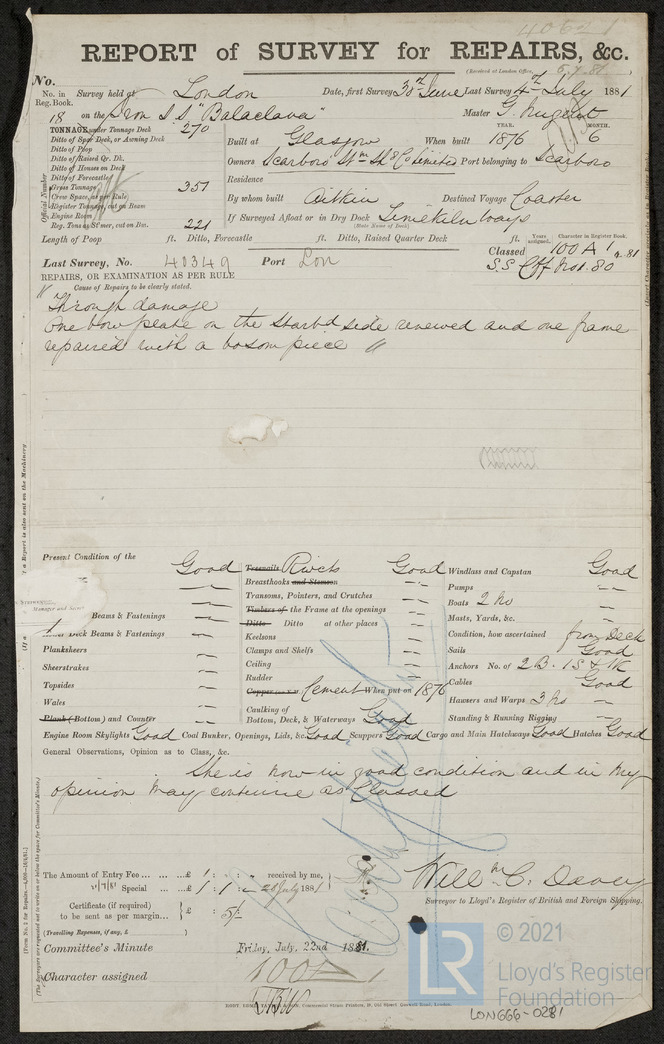 40621
REPORT of SURVEY for REPAIRS, &c.
(Received at London Office, 5.7.81)
No.
No. in Reg. Book. Survey held at London Date, first Survey 30th June Last Survey 4th July 1881
18 on the Iron S.S. "Balaclava" Master G. Nugent
TONNAGE under Tonnage Deck 270
Ditto of Spar Deck, or Awning Deck
Ditto of Poop
Ditto of Raised Qr. Dk.
Ditto of Houses on Deck
Ditto of Forecastle
Gross Tonnage 351
Crew Space, as per Rule
Register Tonnage, cut on Beam
Engine Room
Reg. Tons as St'mer, cut on Bm. 221
Official Number
YEAR. MONTH.
Built at Glasgow When built 1876 6
Owners Scarboro' Stm Sh. Co Limited Port belonging to Scarboro
Residence
By whom built Aitkin Destined Voyage Coaster
If Surveyed Afloat or in Dry Dock Limekiln ways
(State Name of Dock)
Length of Poop ft. Ditto, Forecastle ft. Ditto, Raised Quarter Deck ft.
Years assigned. Character in Register Book.
Last Survey, No. 40349 Port Lon Classed 100 A 1 4.81
S.S Cff No 1. 80
REPAIRS, OR EXAMINATION AS PER RULE
Cause of Repairs to be clearly stated.
" Through damage
One bow plate on the Starbd side renewed and one frame
repaired with a bosom piece "
Present Condition of the
Good
Beams & Fastenings
Deck Beams & Fastenings
Planksheers
Sheerstrakes
Topsides
Wales
Plank (Bottom) and Counter
Treenails Rivets Good
Breasthooks and Stemson
Transoms, Pointers, and Crutches
Timbers of the Frame at the openings
Ditto Ditto at other places
Keelsons
Clamps and Shelfs
Ceiling
Rudder
Copper Cement When put on 1876
Caulking of
Bottom, Deck, & Waterways Good
Windlass and Capstan Good
Pumps
Boats 2 No
Masts, Yards, &c.
Condition, how ascertained from Deck
Sails Good
Anchors No. of 2 B. 1 S & 1K
Cables Good
Hawsers and Warps 3 No
Standing & Running Rigging
Engine Room Skylights Good Coal Bunker, Openings, Lids, &c. Good Scuppers Good Cargo and Main Hatchways Good Hatches Good
General Observations, Opinion as to Class, &c.
She is now in good condition and in my
opinion may continue as Classed
The Amount of Entry Fee ... £ 1 : " : " received by me,
Special ... £ 1 : 1 : - 26 July 1881
Certificate (if required) to be sent as per margin... £ : 5/-
(Travelling Expenses, if any, £ )
Willm C. Davey
Surveyor to Lloyd's Register of British and Foreign Shipping.
Committee's Minute Friday, July 22nd 1881.
Character assigned 100A
LR
© 2021
Lloyd's Register
Foundation
LON666-0281